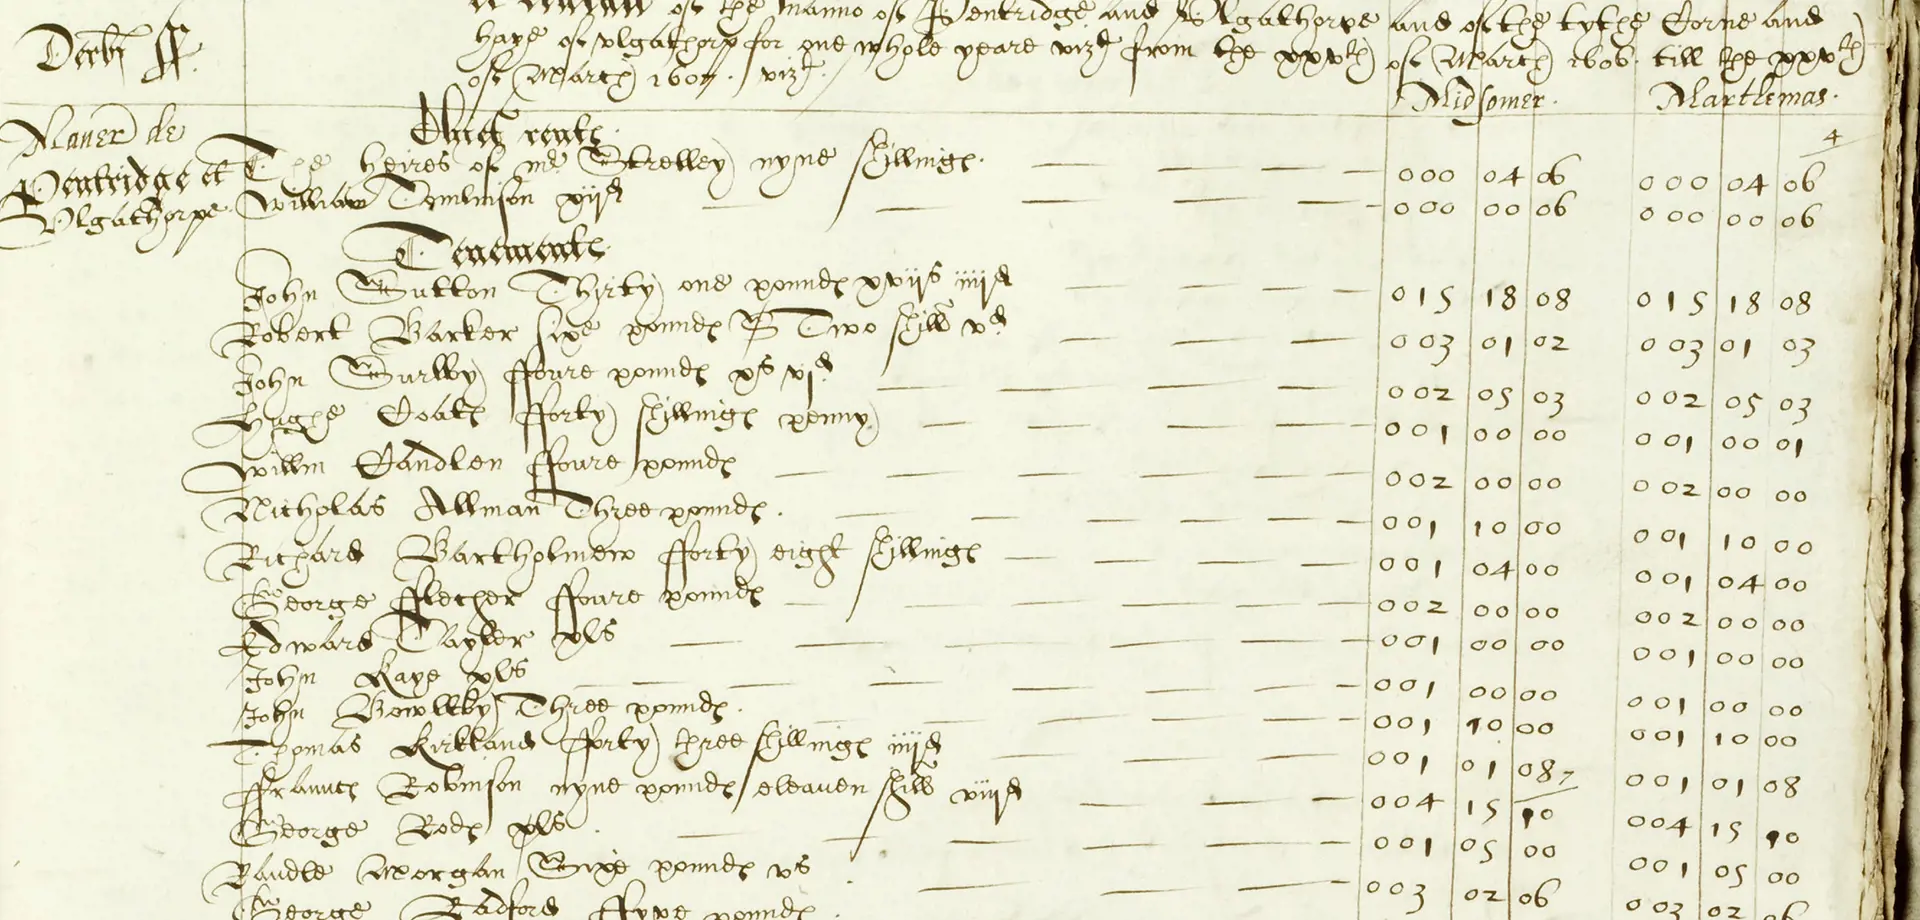 of the Manno of Pentridge and Ulgathorpe and of the tythe Corne and
Haye of Ulgathorp for one whole yeare vizt from the xxvth of March 1606 till the xxvth
of March 1607. vizt.
Derbi ff.
Midsomer. Martlemas.
Maner de Pentridge et Ulgathorpe.
Quit rents.
4
The heires of mr Strelley nyne shillings. 000 04 06 000 04 06
William Tomlinson xijd 000 00 06 000 00 06
Tenements.
John Sutton Thirty one pounds xvijs iiijd 015 18 08 015 18 08
Robert Barker sixe pounds Two shill vd 003 01 02 003 01 03
John ffoure pounds xs vjd 002 05 03 002 05 03
Hughe Coats fforty shillings penny 001 00 00 001 00 01
Willm Candlen ffoure pounds 002 00 00 002 00 00
Nicholas Allman Three pounds. 001 10 00 001 10 00
Richard Bartholmew fforty eight shillings 001 04 00 001 04 00
George ffletcher ffoure pounds 002 00 00 002 00 00
Edward Tayler xls 001 00 00 001 00 00
John Kaye xls 001 00 00 001 00 00
John Three pounds. 001 10 00 001 10 00
Thomas Kirkland fforty three shillings iiijd 001 01 08 001 01 08
ffrancis Robinson nyne pounds eleaven shill viijd 004 15 10 004 15 10
George Rods 001 05 00 001 05 00
Randle Morgan Sixe pounds vs 003 02 06 003 02 06
George Radford ffyve pounds.